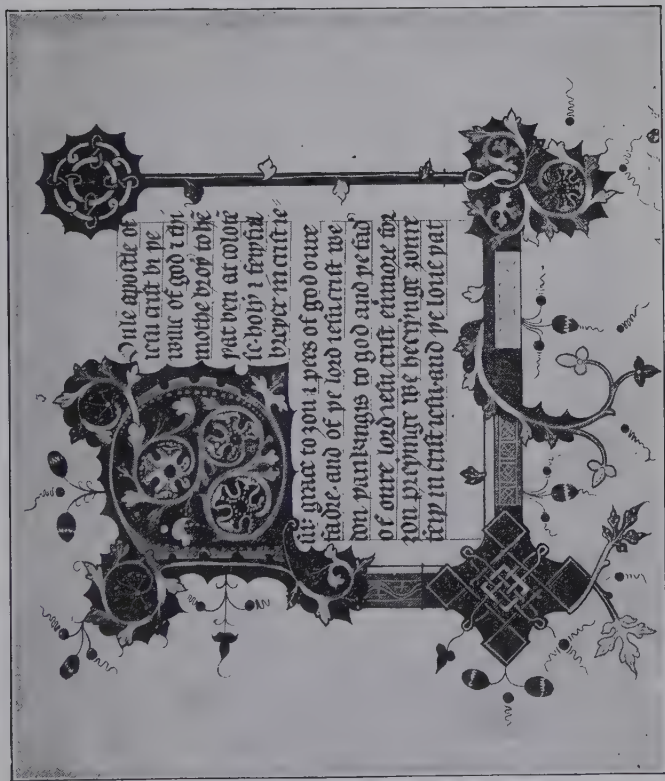 Oule apostle of
iesu crist bi þe
wille of god ⁊ thi
mothe broþ to hē
þat ben at colose
se· holy ⁊ feyþful
breþere in crist ie-
su· grace to ȝou ⁊ pees of god oure
fadre· and of þe lord iesu crist we
don þankingis to god and þe fad'
of oure lord iesu crist euermore for
ȝou preyinge· we heeringe ȝoure
feiþ in crist iesu· and þe loue þat